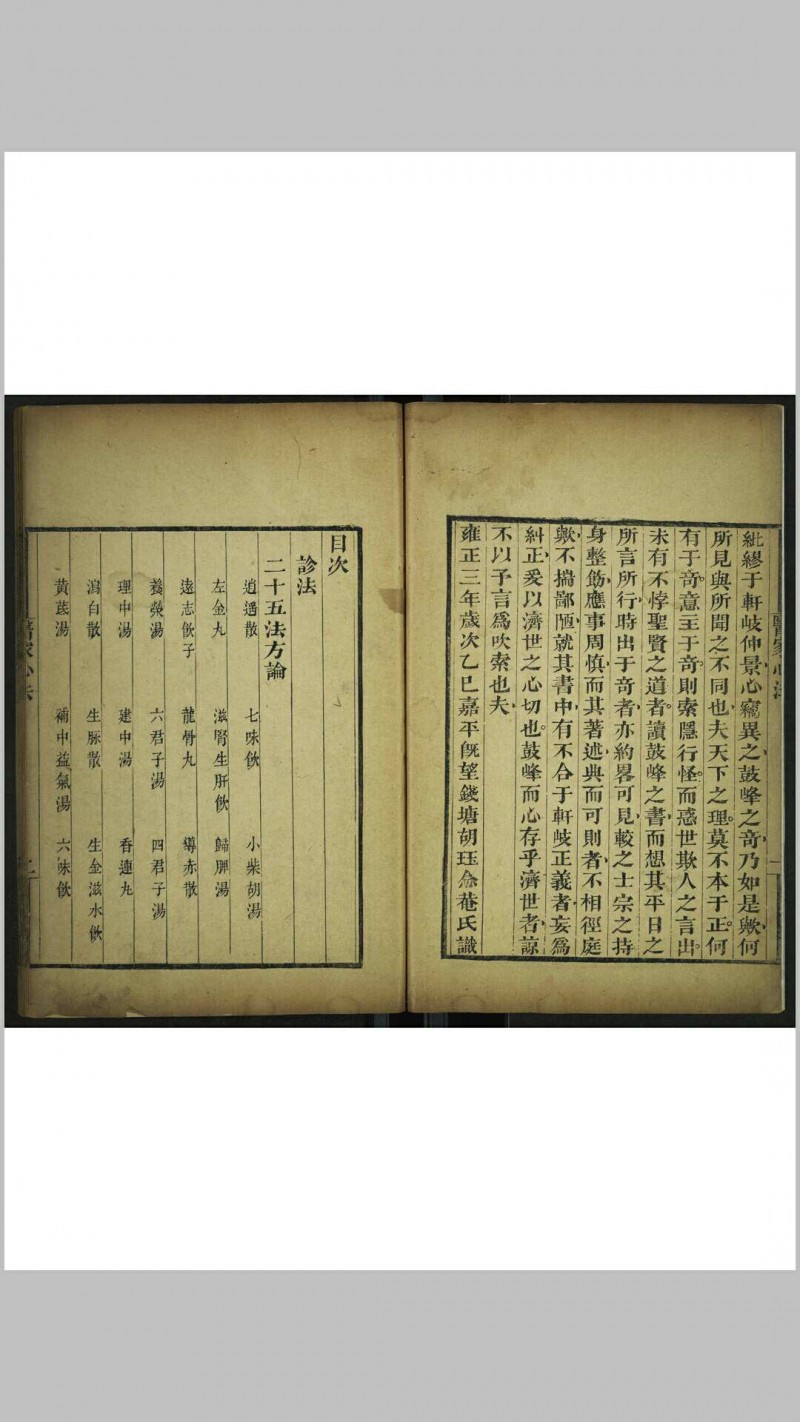 紕繆于軒岐仲景心竊異之鼓峰之奇乃如是歟何
所見與所聞之不同也夫天下之理莫不本于正何
有于奇意主于奇則索隱行怪而惑世欺人之言出
未有不悖聖賢之道者讀鼓峰之書而想其平日之
所言所行時出于奇者亦約畧可見較之士宗之持
身整飭應事周慎而其著述典而可則者不相徑庭
歟不揣鄙陋就其書中有不合于軒岐正義者妄爲
糾正爰以濟世之心切也鼓峰而心存乎濟世者諒
不以予言爲吹索也夫
雍正三年歲次乙巳嘉平旣望錢塘胡珏念菴氏識
醫家心法
一
目次
診法
二十五法方論
逍遥散 七味飲 小柴胡湯
左金丸 滋腎生肝飲 歸脾湯
遠志飲子 龍骨丸 導赤散
養榮湯 六君子湯 四君子湯
理中湯 建中湯 香連丸
瀉白散 生脉散 生金滋水飲
黃芪湯 補中益氣湯 六味飲
醫家心法